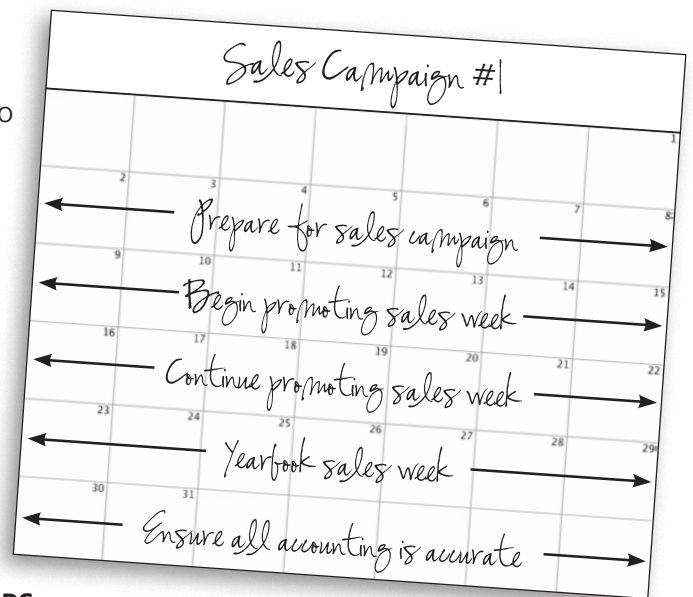 Sales Campaign #1
O
1
2 3 4 5 6 7 8
Prepare for sales campaign
9 10 11 12 13 14 15
Begin promoting sales week
16 17 18 19 20 21 22
Continue promoting sales week
23 24 25 26 27 28 29
Yearbook sales week
30 31
Ensure all accounting is accurate